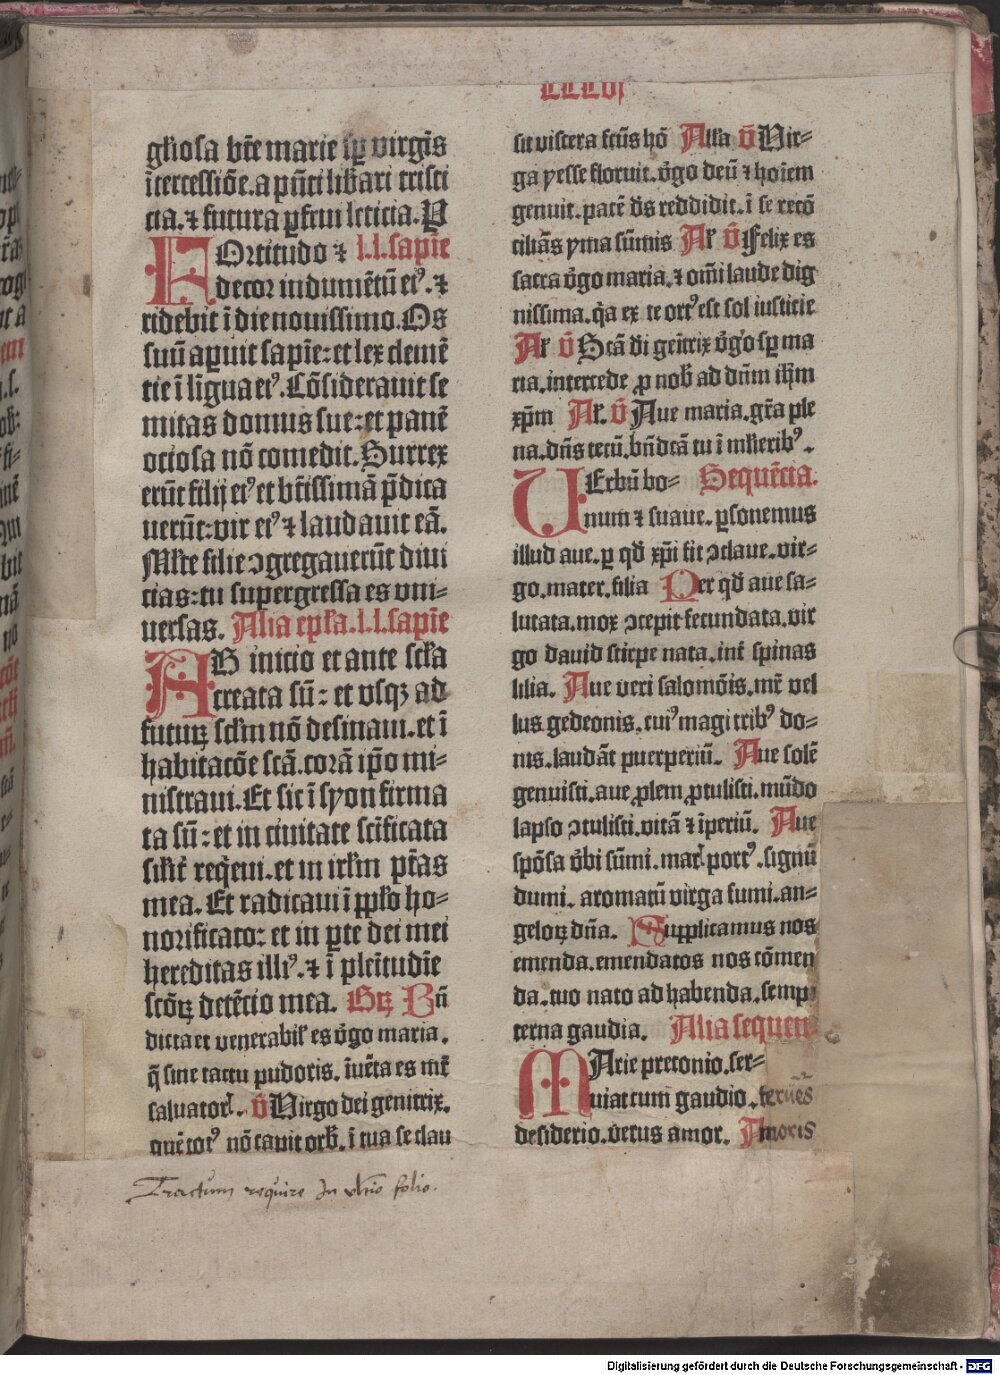 CCCVI
gl'iosa bt̃e marie sp̱ virgĩs
ĩtercessiõe. a pñti lib̃ari tristi
cia. ⁊ futura ꝑfrui leticia. P
FOrtitudo ⁊ l.l. sapiẽ
decor indumẽtũ eiꝰ. ⁊
ridebit ĩ die nouissimo. Os
suũ aperuit sapiẽ: et lex clemẽ
tie ĩ lĩgua eiꝰ. Cõsiderauit se
mitas domus sue: et panẽ
ociosa nõ comedit. Surrex
erũt filij eiꝰ et bt̃issimã p̃dica
uerũt: vir eiꝰ ⁊ laudauit eã.
Ml̃te filie ꝯgregauerũt diui
cias: tu supergressa es vni-
uersas. Alia ep̃la. l.l. sapiẽ
AB inicio et ante sc̃la
creata sũ: et vsqꝫ ad
futurꝝ sclm̃ nõ desinam. et ĩ
habitacõe scã. corã ip̃o mi-
nistraui. Et sic ĩ syon firma
ta sũ: et in ciuitate sc̃ificata
sil'it̃ req̃eui. et in irl̃m pt̃as
mea. Et radicaui ĩ pp̃lo ho-
norificato: et in ꝑte dei mei
hereditas illiꝰ. ⁊ ĩ plẽitudĩe
scõꝝ detẽcio mea. Gꝛ Bñ
dicta et venerabil' es v̾go maria.
q̃ sine tactu pudoris. ĩuẽta es mr̃
saluatorꝭ. v̾ Virgo dei genitrix.
quẽ totꝰ nõ capit orb̾. ĩ tua se clau
sit viscera fctũs hõ Alla v̾ Vir-
ga yesse floruit. v̾go deũ ⁊ hoĩem
genuit. pacẽ d̾s reddidit. ĩ se recõ
ciliãs yma sũmis Aꝛ v̾ Felix es
sacra v̾go maria. ⁊ om̃i laude dig
nissima. q̃a ex te ortꝰ est sol iusticie
Aꝛ v̾ Scã di geĩtrix v̾go sp̱ ma
ria. intercede ꝓ nob̾ ad dñm ih̃m
xp̃m Aꝛ. v̾ Aue maria. gr̃a ple
na. dñs tecũ. bñdcã tu ĩ ml'ieribꝰ.
VErbũ bo- Sequẽcia.
num ⁊ suaue. ꝑsonemus
illud aue. ꝑ qd̾ xp̃i fit ꝯclaue. vir-
go. mater. filia Per qd̾ aue sa-
lutata. mox ꝯcepit fecundata. vir
go dauid stirpe nata. int̾ spinas
lilia. Aue veri salomõis. mr̃ vel
lus gedeonis. cuiꝰ magi tribꝰ do-
nis. laudãt puerperiũ. Aue solẽ
genuisti. aue ꝓlem ꝓtulisti. mũdo
lapso ꝯtulisti. vitã ⁊ ĩperiũ. Aue
spõsa v̾bi sũmi. marꝭ portꝰ. signũ
dumi. aromatũ virga fumi. an-
geloꝝ dña. Supplicamus nos
emenda. emendatos nos cõmen
da. tuo nato ad habenda. sempi
terna gaudia. Alia sequen
MArie preconio. ser-
uiat cum gaudio. feruẽs
desiderio. verus amor. Amoris
Tractum require In vltio folio.
Digitalisierung gefördert durch die Deutsche Forschungsgemeinschaft - DFG